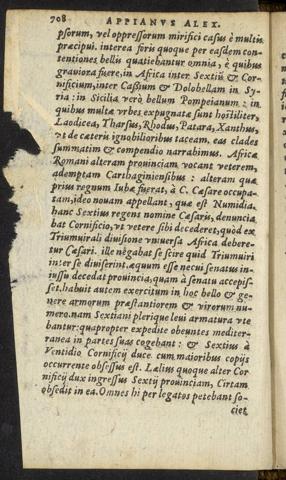 708 APPIANVS ALEX.
psorum, vel oppressorum mirifici casus è multis
præcipui. interea foris quoque per easdem con-
tentiones bellis quatiebantur omnia, è quibus
graviora fuere, in Africa inter Sextiū & Cor-
nificium, inter Caßium & Dolobellam in Sy-
ria: in Sicilia verò bellum Pompeianum: in
quibus multæ vrbes expugnatæ sunt hostiliter,
Laodicea, Tharsus, Rhodus, Patara, Xanthus,
vt de cæteris ignobilioribus taceam, eas clades
summatim & compendio narrabimus. Africæ
Romani alteram prouinciam vocant veterem,
ademptam Carthaginensibus: alteram quæ
prius regnum Iubæ fuerat, à C. Cæsare occupa-
tam, ideo nouam appellant, quæ est Numidia.
hanc Sextius regens nomine Cæsaris, denuncia
bat Cornificio, vt vetere sibi decederet, quòd ex
Triumuirali diuisione vniuersa Africa debere-
tur Cæsari. ille negabat se scire quid Triumuiri
inter se diuiserint, æquum esse necui senatus in-
iussu decedat prouincia, quam à senatu accepis-
set. habuit autem exercitum in hoc bello & ge-
nere armorum præstantiorem & virorum nu-
mero. nam Sextiani plerique leui armatura vte
bantur: quapropter expedite obeuntes mediter-
ranea in partes suas cogebant: & Sextius à
Ventidio Cornificij duce cum maioribus copijs
occurrente obsessus est. Lælius quoque alter Cor
nificij dux ingressus Sextij prouinciam, Cirtam
obsedit in ea. Omnes hi per legatos petebant so-
ciet